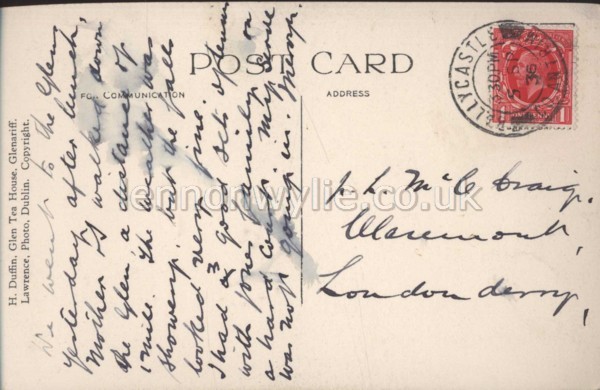 POST CARD
FOR COMMUNICATION
ADDRESS
We went to the Glens
yesterday after lunch,
Mother & I walked down
the Glen a distance of
1 mile. The weather was
showery but the falls
looked very fine.
I had 3 good sets of tennis
with Jones family on
a hard court. My serve
was not going in.
J. L. McC Craig,
Claremont,
Londonderry,
BALLYCASTLE
36
1
H. Duffin, Glen Tea House, Glenariff.
Lawrence, Photo, Dublin. Copyright.
lennonwylie.co.uk